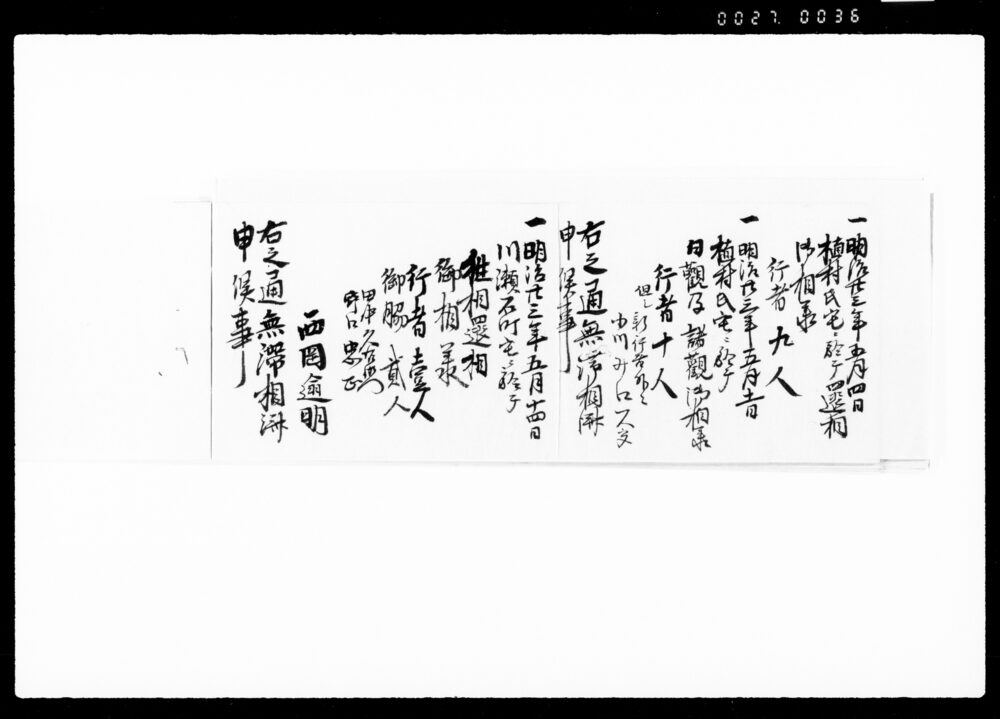 0027. 0036
一明治廿三年五月四日
植村氏宅ニ於テ罷相
御相承
行者九人
一明治廿三年五月十一日
植村氏宅ニ於テ
日觀及諸觀御相承
行者十人
但シ新行者
右之通無滞相済
申候事
一明治廿三年五月十四日
川瀬石町宅ニ於テ
雑相還相
御相承
行者壹人
御脇貳人
田中久右衛門
野口忠正
西岡逾明
右之通無滞相済
申候事